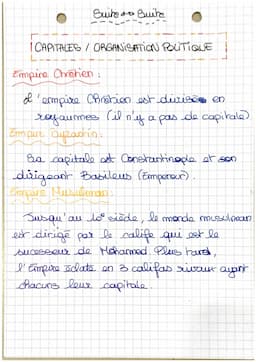 Suite Suite
CAPITALES / ORGANISATION POLITIQUE
Empire Chrétien :
L'empire Chrétien est divisée en
royaumes (il n'y a pas de capitale)
Empire Byzantin :
Sa capitale est Constantinople et son
dirigeant Basileus (Empereur).
Empire Musulman :
Jusqu'au 10e siècle, le monde musulman
est dirigé par le calife qui est le
sucesseur de Mohamed. Plus tard,
l'Empire éclate en 3 califas rivaux ayant
chacuns leur capitale.